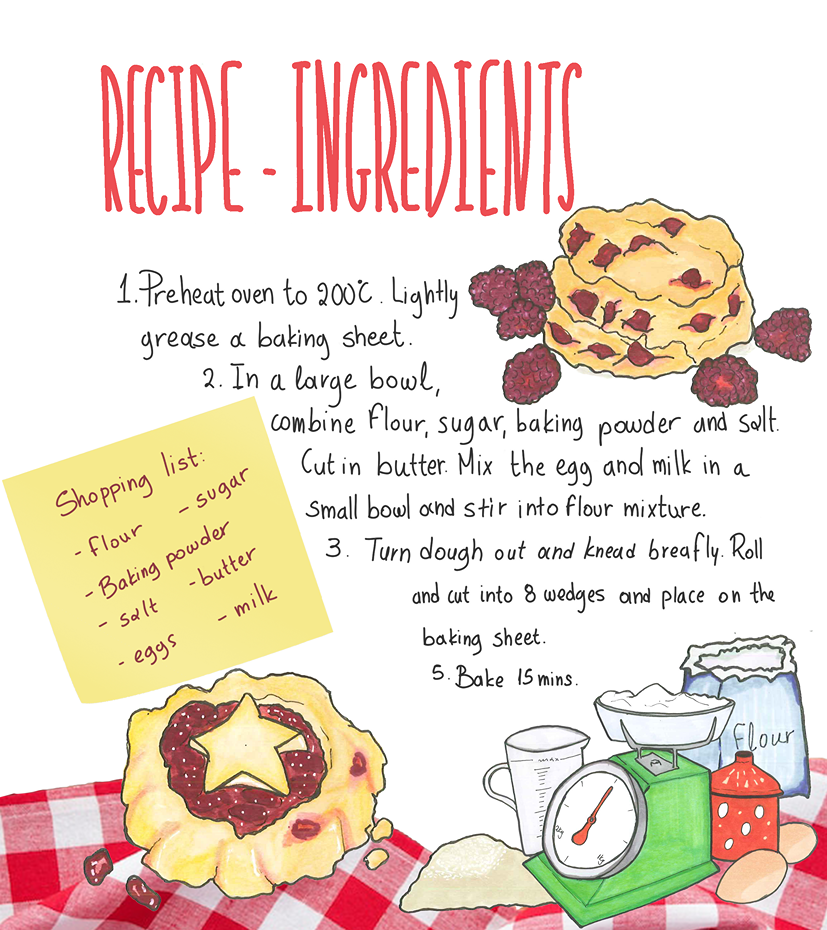 RECIPE - INGREDIENTS
1. Preheat oven to 200°C. Lightly
grease a baking sheet.
2. In a large bowl,
combine flour, sugar, baking powder and salt.
Cut in butter. Mix the egg and milk in a
small bowl and stir into flour mixture.
3. Turn dough out and knead breafly. Roll
and cut into 8 wedges and place on the
baking sheet.
5. Bake 15 mins.
Shopping list:
- flour - sugar
- Baking powder
- salt - butter
- eggs - milk
Flour
max